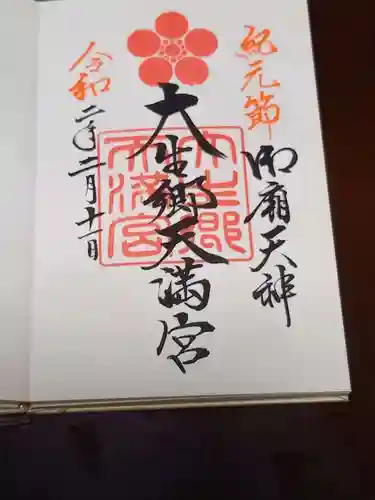 紀元節
御廟天神
大生郷天満宮
大生郷
天満宮
令和
二年二月十一日